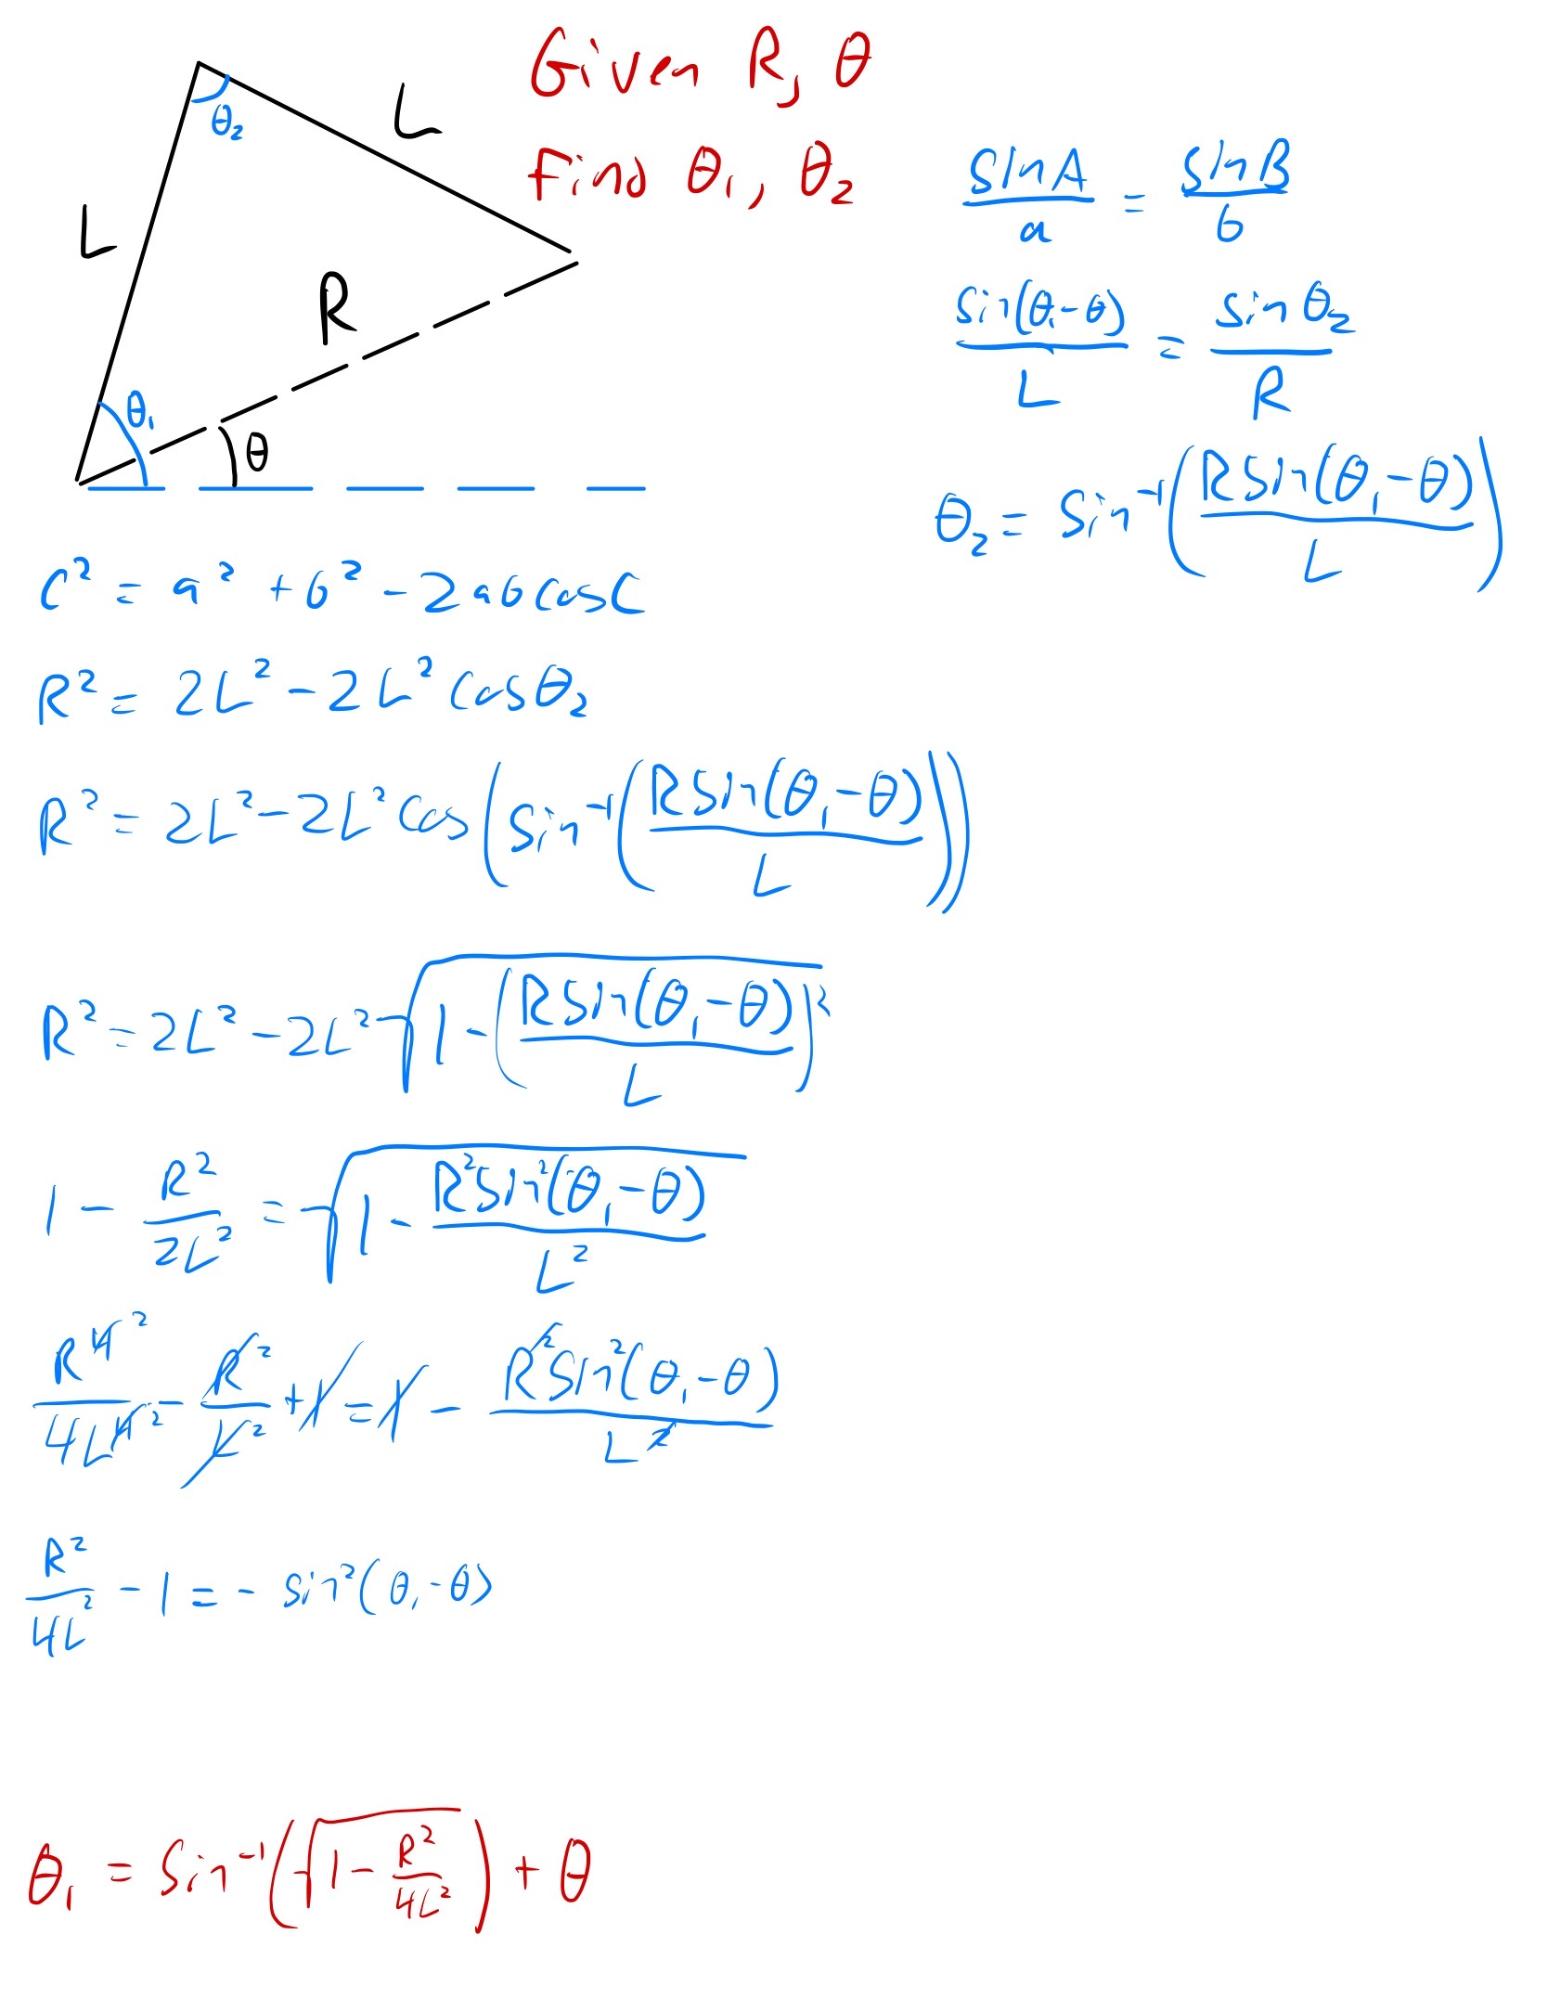 Given R, θ
Find θ₁, θ₂
L
L
R
θ₂
θ₁
θ
sinA/a = sinB/b
sin(θ₁-θ)/L = sin θ₂/R
θ₂ = Sin⁻¹(RSin(θ₁-θ)/L)
C² = a² + b² - 2abcosC
R² = 2L² - 2L² cosθ₂
R² = 2L² - 2L² Cos(Sin⁻¹(RSin(θ₁-θ)/L))
R² = 2L² - 2L² √(1 - (RSin(θ₁-θ)/L)²)
1 - R²/2L² = √(1 - R²Sin²(θ₁-θ)/L²)
R⁴²/4L⁴² - R²/L² + 1 = 1 - R²Sin²(θ₁-θ)/L²
R²/4L² - 1 = - sin²(θ₁-θ)
θ₁ = Sin⁻¹(√(1 - R²/4L²)) + θ